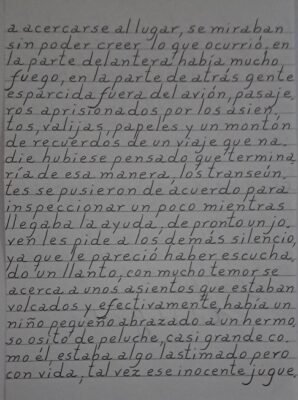 a acercarse al lugar, se miraban
sin poder creer lo que ocurrió, en
la parte delantera había mucho
fuego, en la parte de atrás gente
esparcida fuera del avión, pasaje,
ros aprisionados por los asien,
tos, valijas, papeles y un montón
de recuerdos de un viaje que na,
die hubiese pensado que termina,
ría de esa manera, los transeún,
tes se pusieron de acuerdo para
inspeccionar un poco mientras
llegaba la ayuda, de pronto un jo,
ven les pide a los demás silencio,
ya que le pareció haber escucha,
do un llanto, con mucho temor se
acerca a unos asientos que estaban
volcados y efectivamente, había un
niño pequeño abrazado a un hermo,
so osito de peluche, casi grande co,
mo él, estaba algo lastimado pero
con vida, tal vez ese inocente jugue,